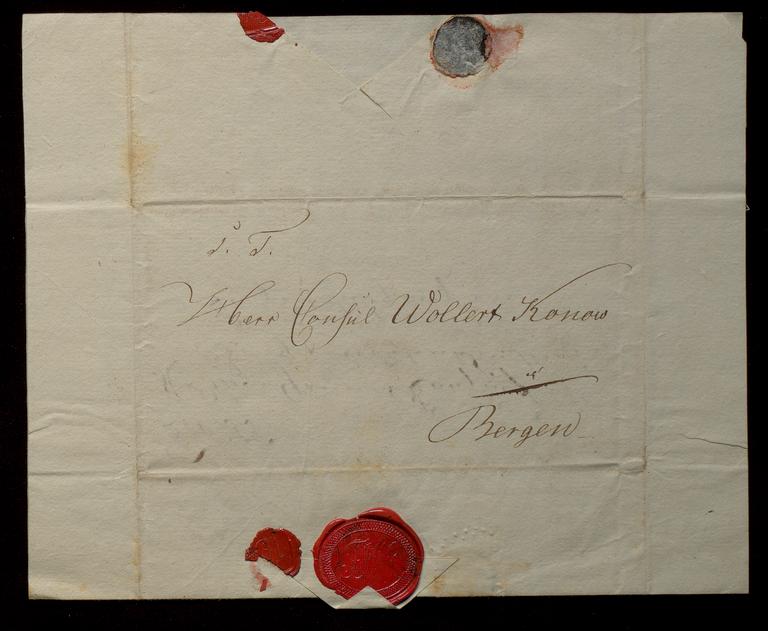 S. T.
Herr Consul Wollert Konow
à
Bergen